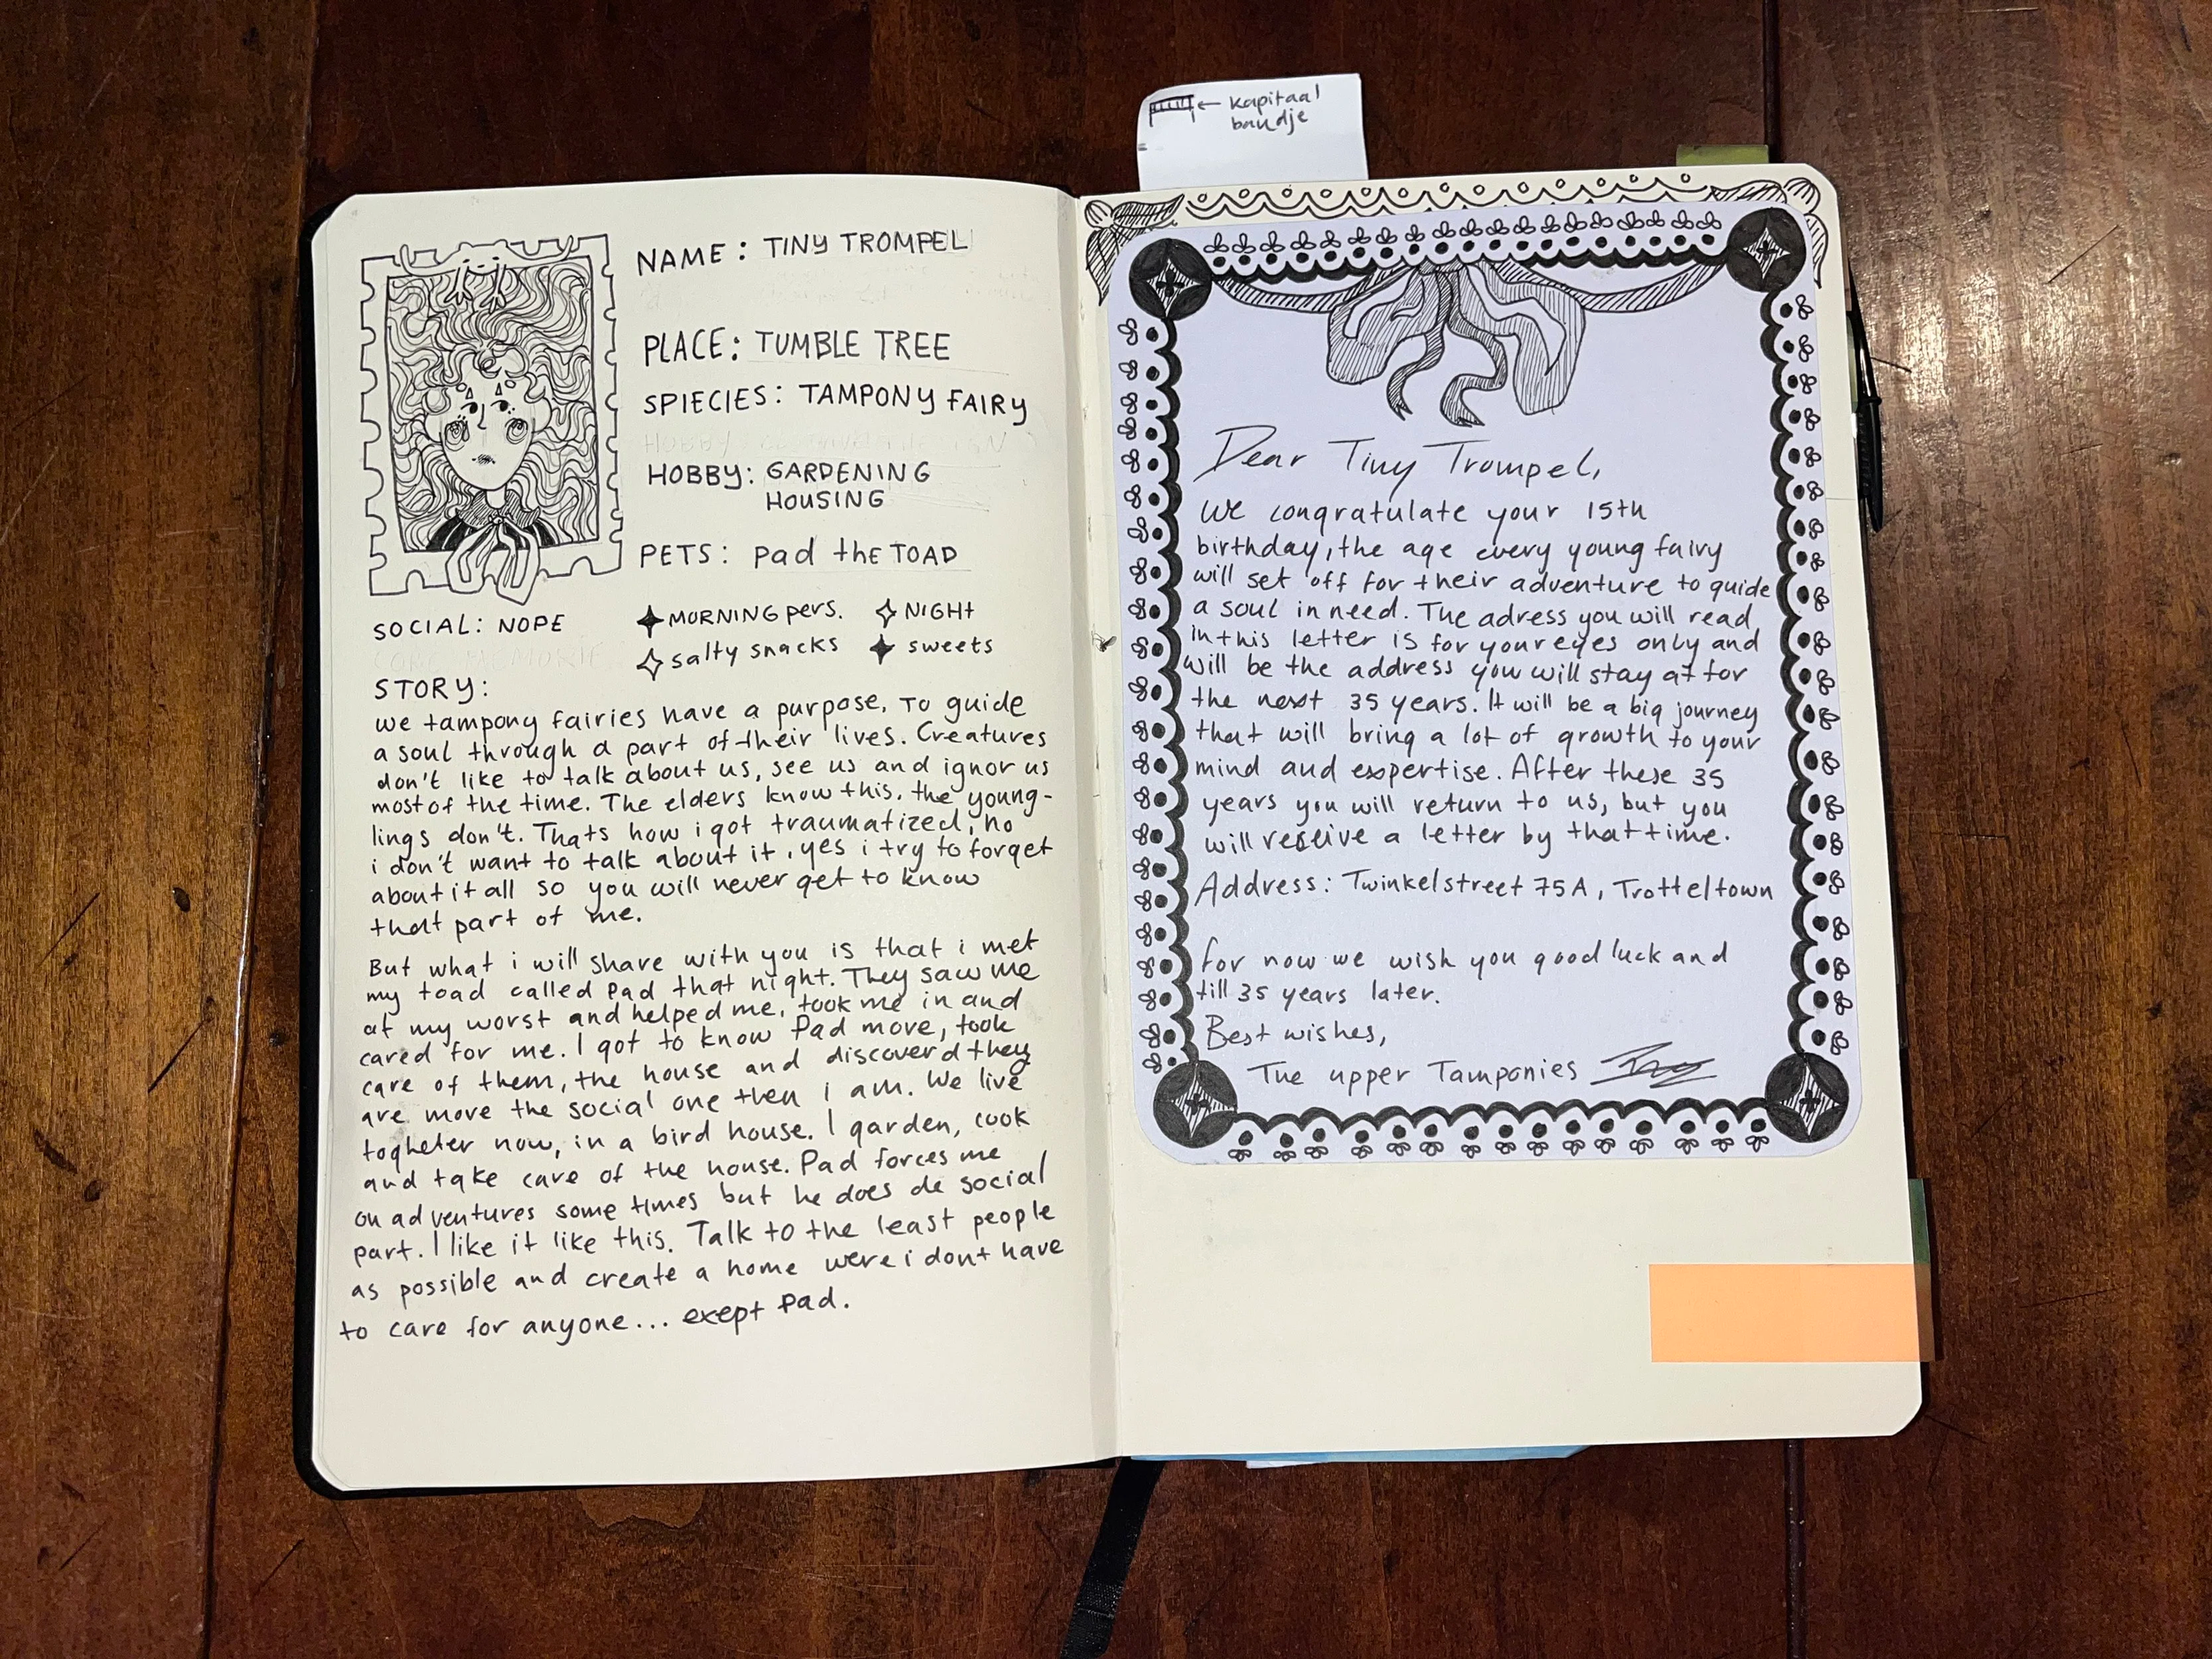 kapitaal
bandje
NAME: TINY TROMPEL
PLACE: TUMBLE TREE
SPIECIES: TAMPONY FAIRY
HOBBY: GARDENING
HOUSING
PETS: pad the TOAD
SOCIAL: NOPE
MORNING pers. NIGHT
salty snacks sweets
STORY:
we tampony fairies have a purpose. To guide
a soul through a part of their lives. Creatures
don't like to talk about us, see us and ignor us
most of the time. The elders know this. the young-
lings don't. Thats how i got traumatized, no
i don't want to talk about it, yes i try to forget
about it all so you will never get to know
that part of me.
But what i will share with you is that i met
my toad called Pad that night. They saw me
at my worst and helped me, took me in and
cared for me. I got to know Pad more, took
care of them, the house and discoverd they
are more the social one then i am. We live
togheter now, in a bird house. I garden, cook
and take care of the house. Pad forces me
on adventures some times but he does de social
part. I like it like this. Talk to the least people
as possible and create a home were i dont have
to care for anyone... exept Pad.
Dear Tiny Trompel,
We congratulate your 15th
birthday, the age every young fairy
will set off for their adventure to guide
a soul in need. The adress you will read
in this letter is for your eyes only and
will be the address you will stay at for
the next 35 years. It will be a big journey
that will bring a lot of growth to your
mind and expertise. After these 35
years you will return to us, but you
will receive a letter by that time.
Address: Twinkelstreet 75A, Trotteltown
for now we wish you good luck and
till 35 years later.
Best wishes,
The upper Tamponies